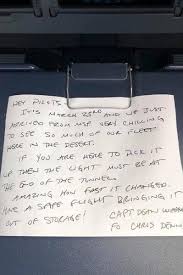 HEY PILOTS
IT'S MARCH 23RD AND WE JUST
ARRIVED FROM MSP. VERY CHILLING
TO SEE SO MUCH OF OUR FLEET
HERE IN THE DESERT.
IF YOU ARE HERE TO PICK IT
UP THEN THE LIGHT MUST BE AT
THE END OF THE TUNNEL.
AMAZING HOW FAST IT CHANGED.
HAVE A SAFE FLIGHT BRINGING IT
OUT OF STORAGE!
CAPT
FO CHRIS